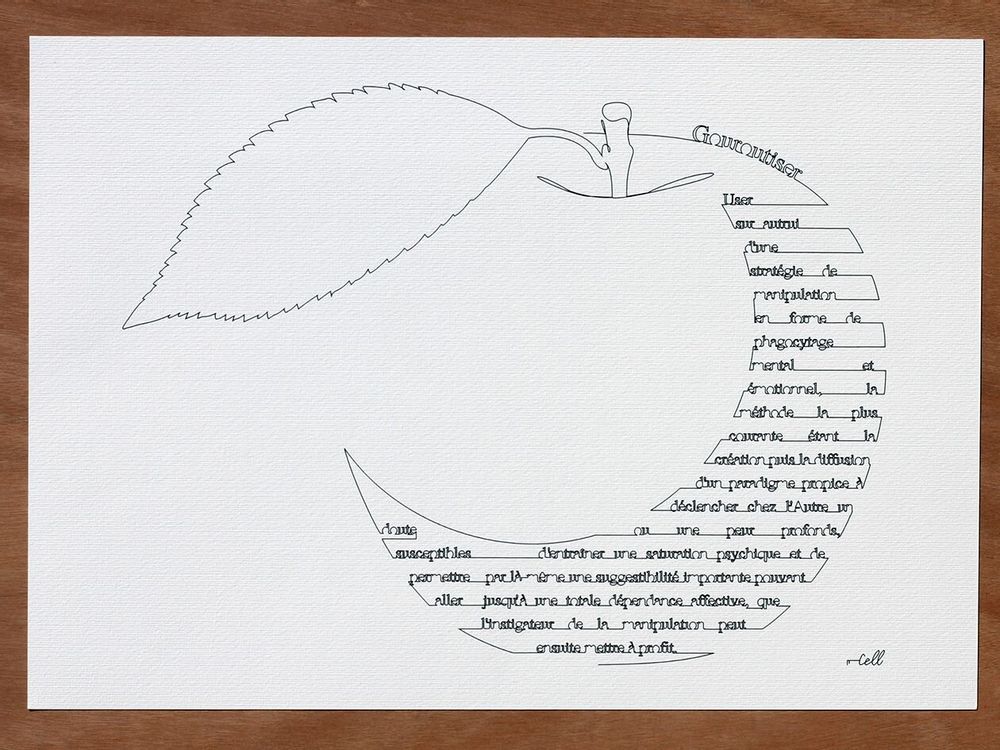 Gouroutiser
User
sur autrui
d'une
stratégie de
manipulation
en forme de
phagocytage
mental et
émotionnel, la
méthode la plus
courante étant la
création puis la diffusion
d'un paradigme propice À
déclencher chez l'Autre un
doute ou une peur profonds,
susceptibles d'entraîner une saturation psychique et de
permettre par lÀ-même une suggestibilité importante pouvant
aller jusqu'À une totale dépendance affective, que
l'instigateur de la manipulation peut
ensuite mettre À profit.